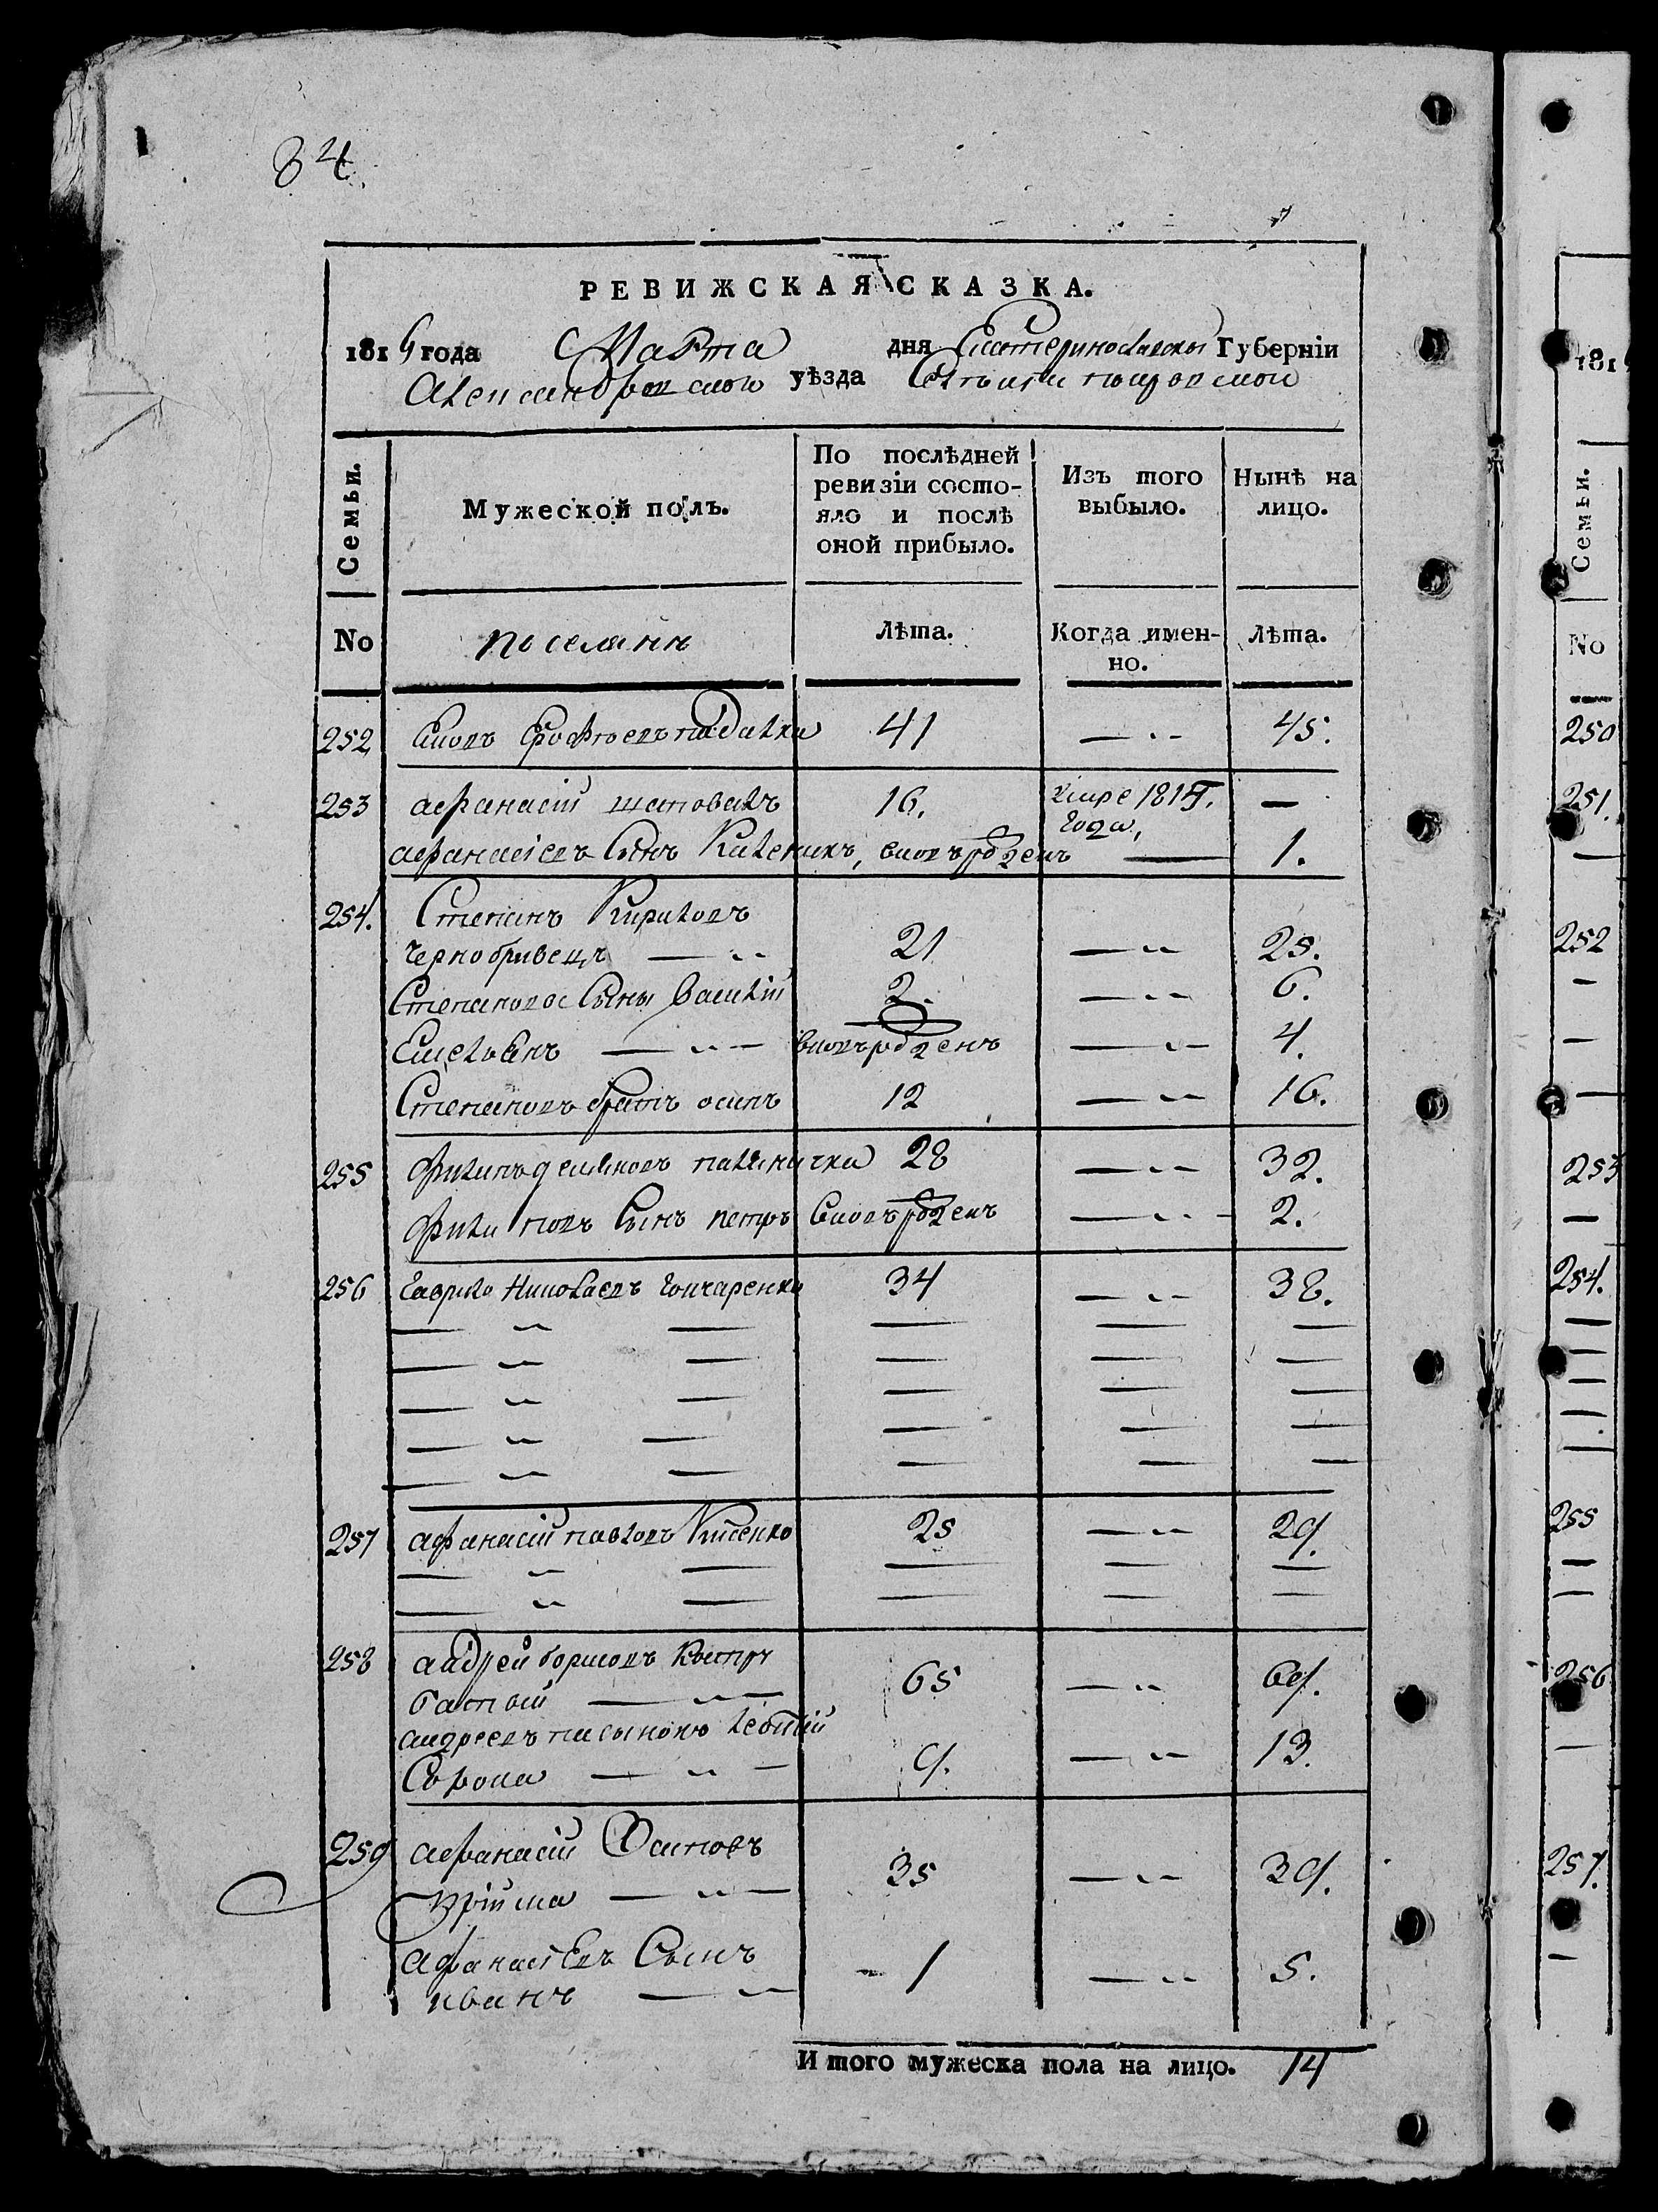 84.
РЕВИЖСКАЯ СКАЗКА.
181 года Марта дня Екатеринославской Губерніи
Александровской уѣзда
Семьи.
Мужеской полъ.
По послѣдней ревизіи состояло и послѣ оной прибыло.
Изъ того выбыло.
Нынѣ на лицо.
No поселянъ
лѣта.
Когда именно.
лѣта.
252 Ерофѣевъ падалка 41 — 45.
253 афанасій шаповалъ 16. умре 1814. —
года,
афанасіевъ Сынъ Каленикъ, вновъ рожденъ — 1.
254. Степанъ Кириловъ
Чернобривецъ — 21 — 25.
Степановы Сыны Василій 2. — 6.
Емельянъ — вновърожденъ — 4.
Степановъ братъ осипъ 12 — 16.
255 филипъ 28 — 32.
Филиповъ Сынъ петръ вновърожденъ — 2.
256 гаврило Николаевъ гончаренко 34 — 38.
257 афанасій павловъ 25 — 29.
258 андрей борисовъ
65 — 69.
андреевъ пасынокъ
Сорока — 9. — 13.
259 афанасій Осиповъ
— 35 — 39.
афанасіевъ Сынъ
иванъ — 1 — 5.
И того мужеска пола на лицо. 14
181
Семьи.
No
250
251.
252
253
254.
255
256
257.